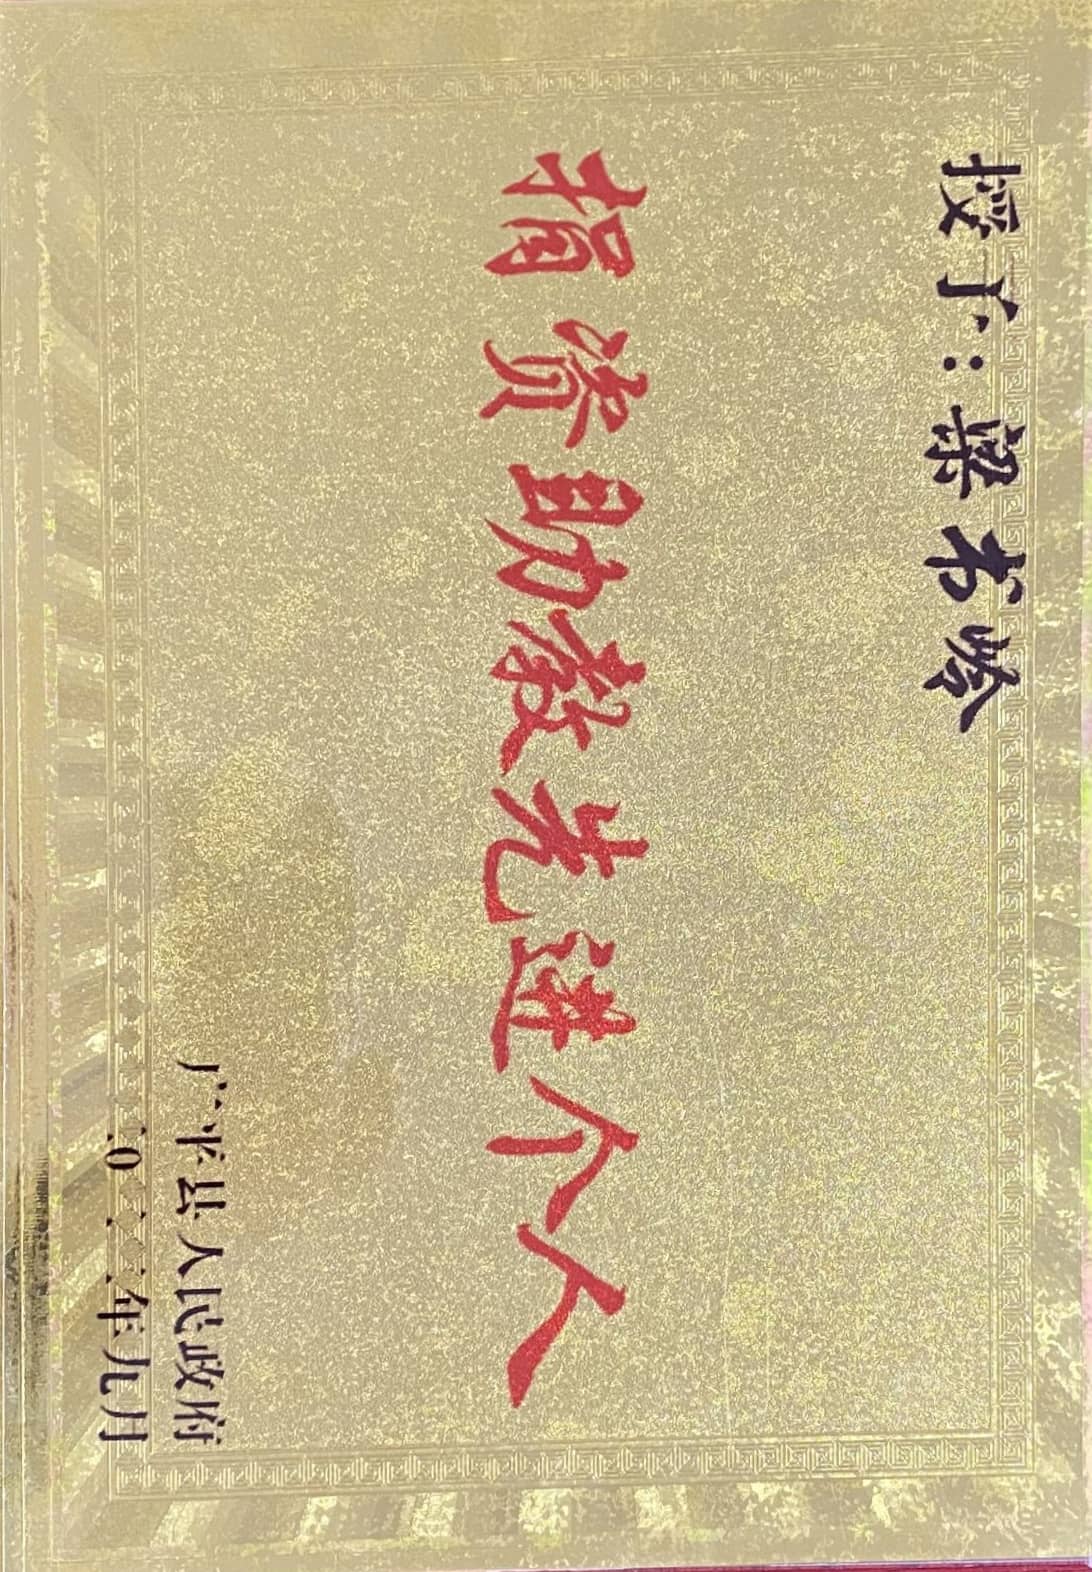 授予：梁书岭
捐资助教先进个人
广平县人民政府
二0二二年九月